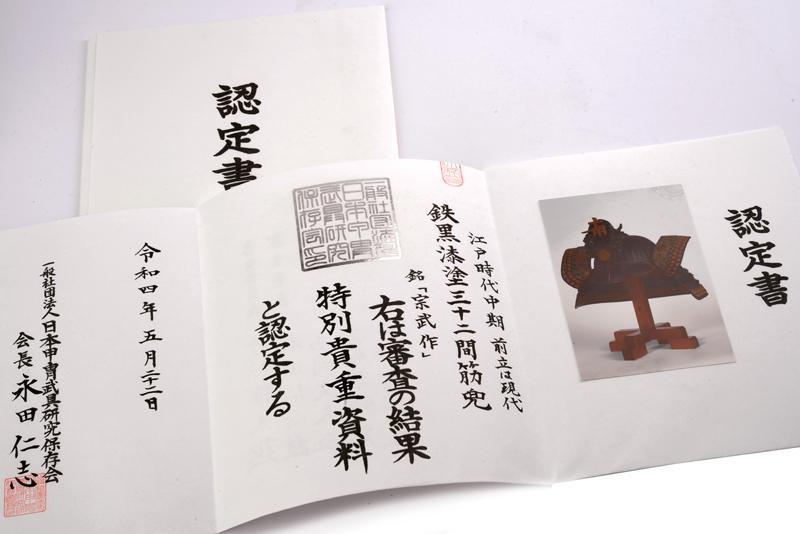 認定書
認定書
江戸時代中期 前立は現代
鉄黒漆塗三十二間筋兜
銘「宗武作」
右は審査の結果
特別貴重資料
と認定する
一般社団法人
日本甲冑
武具研究
保存会印
令和四年五月二十二日
一般社団法人日本甲冑武具研究保存会
会長 永田仁志